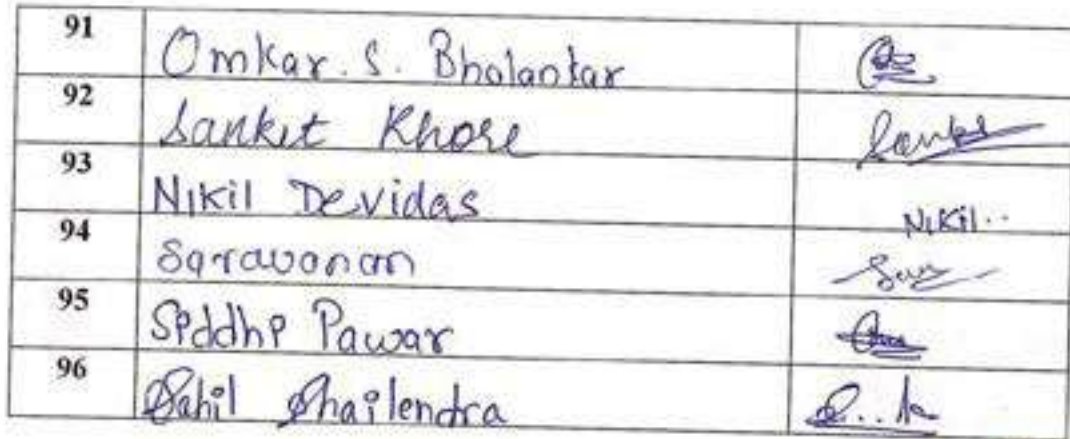 91 Omkar. S. Bhalankar
92 Sankit Khore
93 Nikil Devidas Nikil..
94 Saravanan
95 Siddhi Pawar
96 Sahil Shailendra